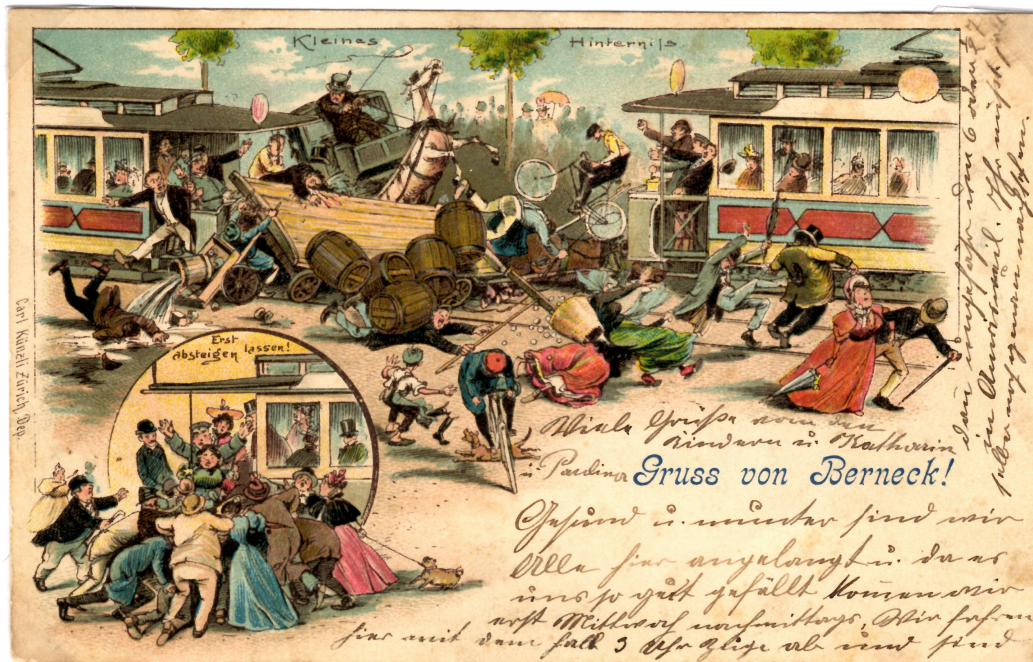 Kleines Hinternifs
Carl Künzli Zürich, Dep.
Erst
absteigen lassen!
Viele Grüße von den
Kindern u. Katharin
u Paulina
Gruss von Berneck!
Gesund u. munter sind wir
Alle hier angelangt u. da es
uns so gut gefällt kommen wir
erst Mittwoch nachmittags, Wir fahren
hier mit dem halb 3 Uhr Zuge ab und sind
dan ungefähr um 6 oder